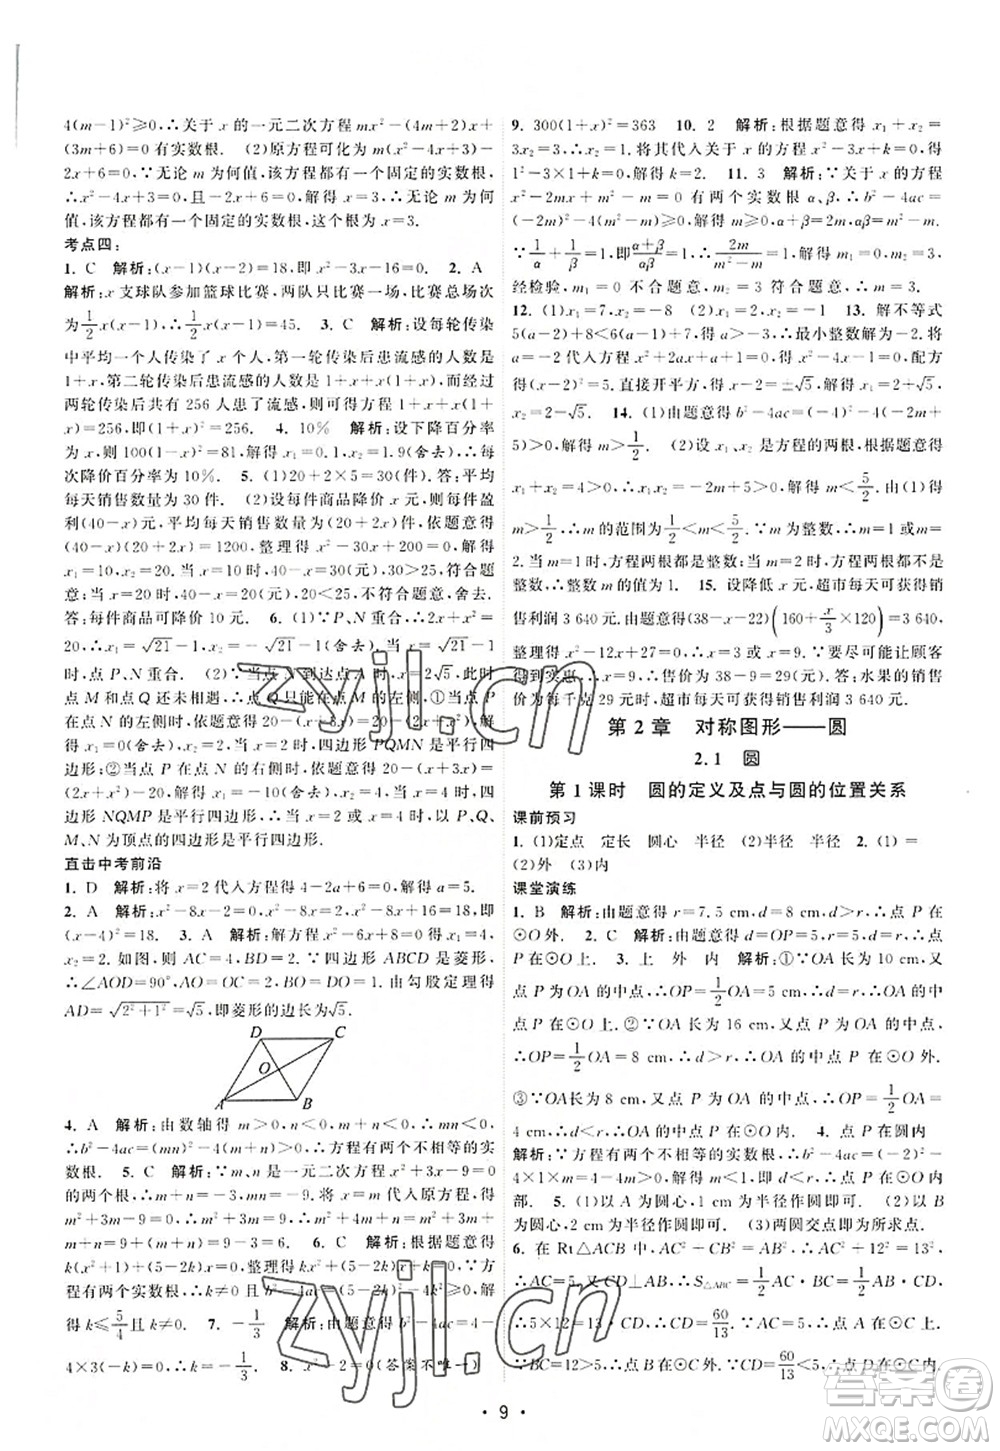 4(m-1)²≥0,∴关于 x 的一元二次方程 mx²-(4m+2)x+
(3m+6)=0 有实数根. (2)原方程可化为 m(x²-4x+3)-
2x+6=0,∵无论 m 为何值,该方程都有一个固定的实数根,
∴x²-4x+3=0,-2x+6=0,解得 x=3,∴无论 m 为何
值,该方程都有一个固定的实数根,这个固定的实数根为 x=3.
考点四:
1. C 解析:(x-1)(x-2)=18,即 x²-3x-16=0. 2. A
解析:x 支球队参加篮球比赛,两队只打一场,则比赛场次
为 1/2 x(x-1),∴1/2 x(x-1)=45. 3. C 解析:设每轮传染
中平均一个人传染了 x 个人,第一轮传染后患流感的人数是
1+x,第二轮传染后患流感的人数是 1+x+x(1+x),因此
两轮传染后共有 256 人患了流感,则可列方程为 1+x+x(1+
x)=256,即(1+x)²=256. 4. 10% 解析:设下降百分率
为 x,则 100(1-x)²=81,解得 x₁=0.1,x₂=1.9(舍去),故每
次降价百分率为 10%. 5. (1)20+2×5=30(件) 答:平均
每天销售数量为 30 件. (2)设每件商品降价 x 元,则每件盈
利(40-x)元,平均每天销售数量为(20+2x)件,依题意得
(40-x)(20+2x)=1200,整理得 x²-30x+200=0,解得
x₁=10,x₂=20. 当 x=20 时,40-x=20<25,∴x=20 不合
题意,应舍去;当 x=10 时,40-x=30(元)>25,符合题意. 
答:每件商品可降价 10 元. 6. (1)当点 P、N 重合时,2x+x²=
20,∴x₁=√21-1,x₂=-√21-1(舍去),∴当 x=√21-1
时,点 P、N 重合. (2)因为当 N 点到达 A 点时,x=2√5,此时
点 M 和点 Q 还未相遇,∴点 Q 只能在点 M 的左侧,①当点 P
在点 N 的左侧时,依题意得 20-(x+3x)=20-(2x+x²),
解得 x₁=0(舍去),x₂=2. 当 x=2 时,四边形 PQMN 是平行
四边形;②当点 P 在点 N 的右侧时,依题意得 20-(x+3x)=
(2x+x²)-20,解得 x₁=-10(舍去),x₂=4. 当 x=4 时,四边
形 NQMP 是平行四边形,∴当 x=2 或 x=4 时,以 P、Q、
M、N 为顶点的四边形是平行四边形.
直击中考前沿
1. D 解析:将 x=2 代入方程得 4-2a+6=0,解得 a=5.
2. A 解析:∵x²-8x-2=0,∴x²-8x=2,则 x²-8x+16=18,
即(x-4)²=18. 3. A 解析:解方程 x²-6x+8=0 得 x₁=4,
x₂=2. 如图,则 AC=4,BD=2. ∵四边形 ABCD 是菱形,
∴∠AOD=90°,AO=OC=2,BO=DO=1. 由勾股定理得
AD=√2²+1²=√5,即菱形的边长为√5.
D C
O
A B
4. A 解析:由数轴得 m>0,n<0,m+n<0,∴mn<0,
∴b²-4ac=(mn)²-4(m+n)>0,∴方程有两个不相等的实
数根. 5. C 解析:∵m、n 是一元二次方程 x²+x-9=0
的两个根,∴m+n=-1,将 x=m 代入原方程,得
m²+m-9=0,即 m²+m=9,则 m²+4m+3n=
m²+m+3(m+n)=9-3=6. 6. C 解析:根据题意得
k(x²-2x+1)-5x+5+m=0,整理得 kx²+(5-2k)x+k=0. ∵
方程有两个实数根,∴Δ=(5-2k)²-4k²≥0 且 k≠0,解
得 k≤5/4 且 k≠0. 7. -1/3 解析:由题意得 b²-4ac=4-
4×3(-k)=0,∴k=-1/3. 8. x²-2=0(答案不唯一)
9. 300(1+x)²=363 10. 2 解析:根据题意得 x₁+x₂=
3,x₂=2,∴x₁=1,将其代入关于 x 的方程 x²-3x+k=0,得
1²-3×1+k=0,解得 k=2. 11. 3 解析:∵关于 x 的方程
x²-2mx+m²-m=0 有两个实数根 α、β,∴b²-4ac=
(-2m)²-4(m²-m)≥0,解得 m≥0,αβ=m²-m,α+β=2m.
∵1/α+1/β=1,即(α+β)/αβ=1,∴2m/(m²-m)=1,解得 m₁=0,m₂=3,
经检验,m₁=0 不合题意,m₂=3 符合题意,∴m=3.
12. (1)x₁=7,x₂=-8 (2)x₁=2,x₂=-4 13. 解不等式
5(a-2)+8<6(a-1)+7,得 a>-3,∴最小整数解为-2. 将
a=-2 代入方程 x²+2ax-a+1=0,得 x²-4x-2=0,配方
得(x-2)²=5. 直接开平方,得 x-2=±√5,解得 x₁=2+√5,
x₂=2-√5. 14. (1)由题意得 b²-4ac=(2m)²-4(m²-2m+
5)>0,解得 m>1/2. (2)∵x₁、x₂ 是方程的两根,根据题意得
x₁+x₂=-2m,x₁x₂=m²-2m+5/4>0,解得 m<5/2. ∵
m>1/2,∴m 的范围为 1/2<m<5/2. ∵m 为整数,∴m=1 或
2. 当 m=1 时,方程两根都是整数;当 m=2 时,方程两根都不是
整数,∴整数 m 的值为 1. 15. 设降低 x 元,超市每天可获得销
售利润 3 640 元. 由题意得(38-x-22)(160+x/3×120)=3640,
整理得 x²-12x+27=0,解得 x=3 或 x=9. ∵要尽可能让顾客
得到实惠,∴x=9,∴售价为 38-9=29(元). 答:水果的销
售价为每千克 29 元时,超市每天可获得销售利润 3 640 元.
第 2 章 对称图形——圆
2.1 圆
第 1 课时 圆的定义及点与圆的位置关系
课前预习
1. (1)定点 定长 圆心 半径 (2)半径 2. (1)=
(2)外 (3)内
课堂演练
1. B 解析:由题意得 r=7.5 cm,d=8 cm,∴d>r,∴点 P
在⊙O 外. 2. C 解析:由题意得 r=5 cm,d=5 cm,∴d=r,
∴点 A 在⊙O 上. 3. 上 外 内 解析:①∵OA=
10 cm,又点 P 为 OA 的中点,∴OP=1/2OA=5 cm,∴d=r,∴
点 P 在⊙O 上. ②∵OA 长为 16 cm,又点 P 为 OA 的中点,
∴OP=1/2OA=8 cm,∴d>r,∴点 P 在⊙O 外.
③∵OA 长为 8 cm,又点 P 为 OA 的中点,∴OP=1/2OA=
4 cm,∴d<r,∴点 P 在⊙O 内. 4. 点 P 在圆内
解析:
1×2×1=4-4m≥0,解得 m≤1. ∴点 P 在⊙O 内
部. 5. (1)以 A 为圆心,1 cm 为半径作圆即可. (2)以 B
为圆心,2 cm 为半径作圆即可. (3)两圆交点即为所求点.
6. 在 Rt△ACB 中,∵AB²=AC²+BC²,∴AC²+12²=13²,
∴AC=5(负值已舍去). ∵CD⊥AB,∴S△ABC=1/2AC·BC=1/2AB·CD,
∴5×12=13×CD,∴CD=60/13. ∵AC=5=r,∴点 A 在⊙C 上,
∵BC=12>5,∴点 B 在⊙C 外. ∵CD=60/13<5,∴点 D 在⊙C 内.
· 9 ·
zyjl.cn
zyjl.cn
答案圈
MXQE.COM